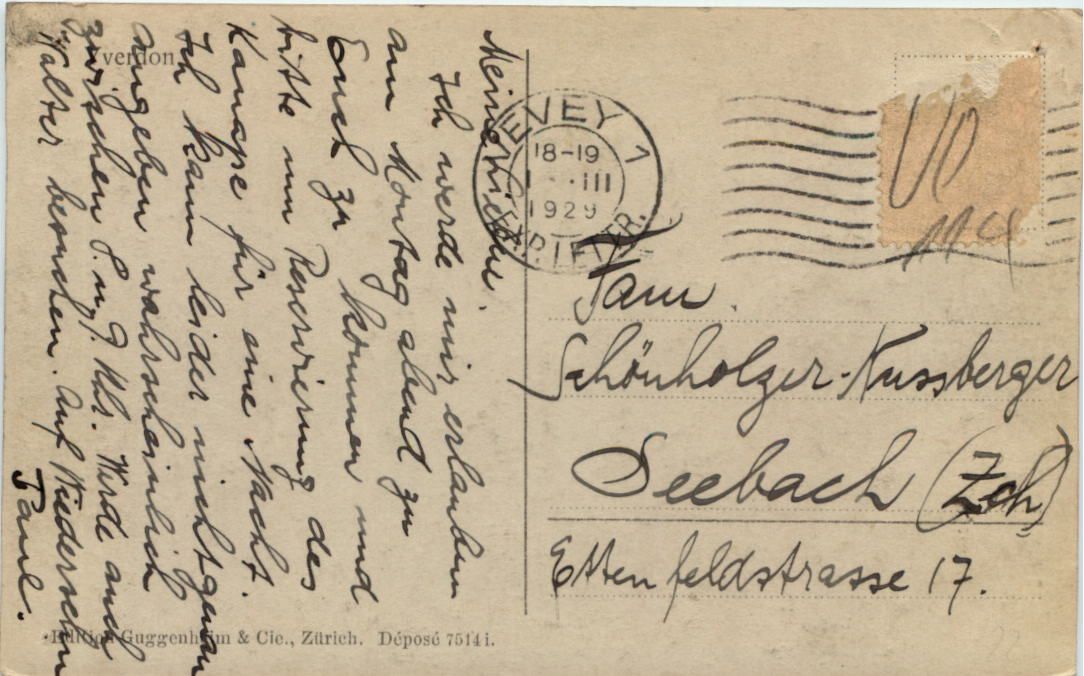 Yverdon
Meine Lieben.
Ich werde mir erlauben
am Montag abend zu
Euch zu kommen und
bitte um Reservierung des
Kanape für eine Nacht.
Ich kann leider nicht genau
angeben wahrscheinlich
zwischen 8. u. 9. Uhr. Werde auch
Walter besuchen. Auf Wiedersehn
Paul.
VEVEY 1
18-19
III
1929
Fam.
Schönholzer-Nussberger
Seebach (Zch)
Ettenfeldstrasse 17.
Edition Guggenheim & Cie., Zürich. Déposé 7514 i.